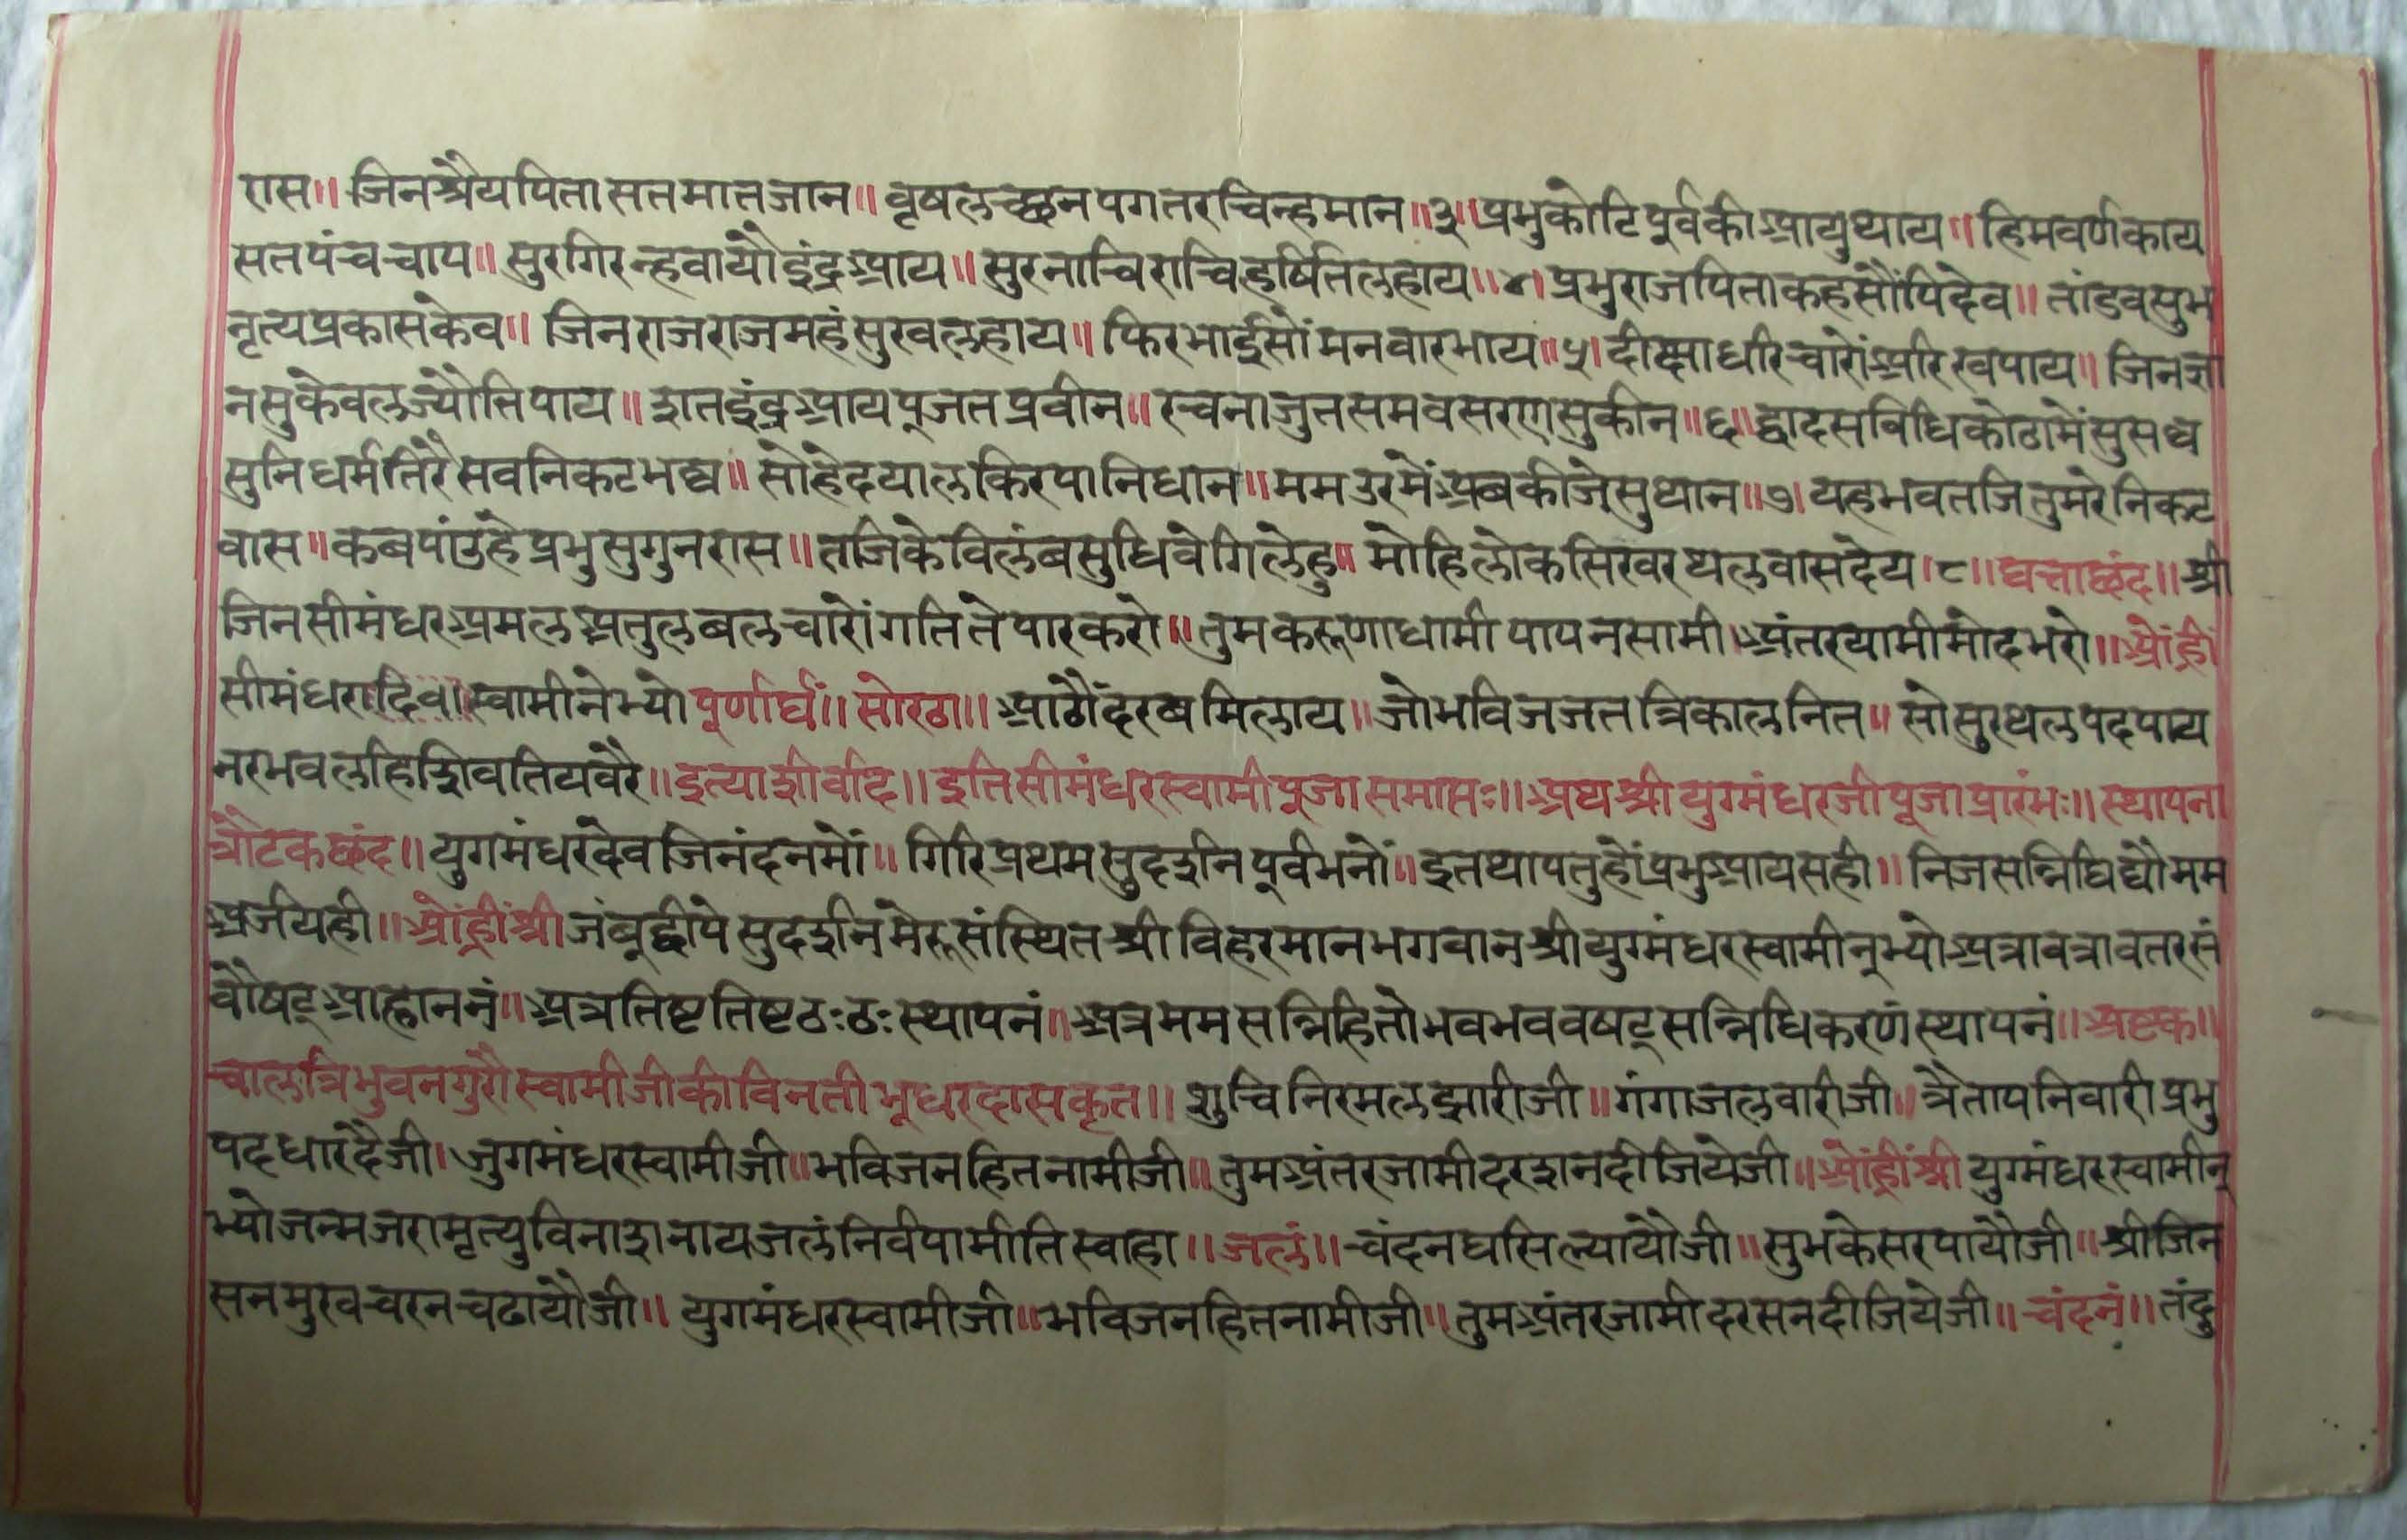 रास॥ जिनश्रेयपितासतमातजान॥ वृषलच्छनपगतरचिन्हमान॥३॥प्रभुकोटिपूर्वकीआयुथाय॥ हिमवर्णकाय
सतपंचचाप॥ सुरगिरन्हवायौइंद्रआय॥ सुरनाचिराचिहर्षितलहाय॥४॥ प्रभुराजपिताकहसौंपिदेव॥ तांडवसुभ
नृत्यप्रकासकेव॥ जिनराजराजमहंसुखलहाय॥ फिरभाईसोंमनवारभाय॥५॥ दीक्षाधरिचारोंअरिखपाय॥ जिनज्ञा
नसुकेवलज्यौतिपाय॥ शतइंद्रआयपूजतप्रवीन॥ रचनाजुतसमवसरणसुकीन॥६॥ द्वादसविधिकोठामेंसुसव्व
सुनिधर्मतिरैसवनिकटभव्व॥ सोहेदयालकिरपानिधान॥ ममउरमेंअबकीजेसुथान॥७॥ यहभवतजितुमरेनिकट
वास॥ कबपांउहेप्रभुसुगुनरास॥ तजिकेविलंबसुधिवेगिलेहु॥ मोहिलोकसिखरथलवासदेय।८॥ घत्ताछंद॥ श्री
जिनसीमंधरअमलअतुलबलचारोंगतितेपारकरो॥ तुमकरूणाधामीपापनसामी॥अंतरयामीमोदभरो॥ ओंह्रीं
सीमंधरादिव।स्वामीनेभ्योपूर्णार्घं॥ सोरठा॥ आठौंदरबमिलाय॥ जोभविजजतत्रिकालनित॥ सोसुरथलपदपाय
नरभवलहिशिवतियवरै॥ इत्याशीर्वाद॥ इतिसीमंधरस्वामीपूजासमाप्तः॥ अथश्रीयुग्मंधरजीपूजाप्रारंभः॥ स्थापना
त्रोटकछंद॥ युगमंधरदेवजिनंदनमों॥ गिरिप्रथमसुदर्शनपूर्वभनों॥ इतथापतुहोंप्रभुआयसही॥ निजसन्निधिद्यौमम
अर्जयही॥ ओंह्रींश्रीजंबूद्वीपेसुदर्शनमेरूसंस्थितश्रीविहरमानभगवानश्रीयुग्मंधरस्वामीनुभ्योअत्रावत्रावतरसं
वौषट्आह्वाननं॥ अत्रतिष्टतिष्टठःठःस्थापनं॥ अत्रममसन्निहितोभवभववषट्सन्निधिकरणंस्थापनं॥ अष्टक॥
चालत्रिभुवनगुरौस्वामीजीकीविनतीभूधरदासकृत॥ शुचिनिरमलझारीजी॥ गंगाजलवारीजी॥ त्रैतापनिवारीप्रभु
पदधारदैजी॥ जुगमंधरस्वामीजी॥भविजनहितनामीजी॥ तुमअंतरजामीदरशनदीजियेजी॥ ओंह्रींश्रीयुग्मंधरस्वामीन्
भ्योजन्मजरामृत्युविनाशनायजलंनिर्वपामीतिस्वाहा॥ जलं॥ चंदनघसिल्यायौजी॥ सुभकेसरपायौजी॥ श्रीजिन
सनमुखचरनचढायौजी॥ युगमंधरस्वामीजी॥भविजनहितनामीजी॥ तुमअंतरजामीदरसनदीजियेजी॥ चंदनं॥ तंदु